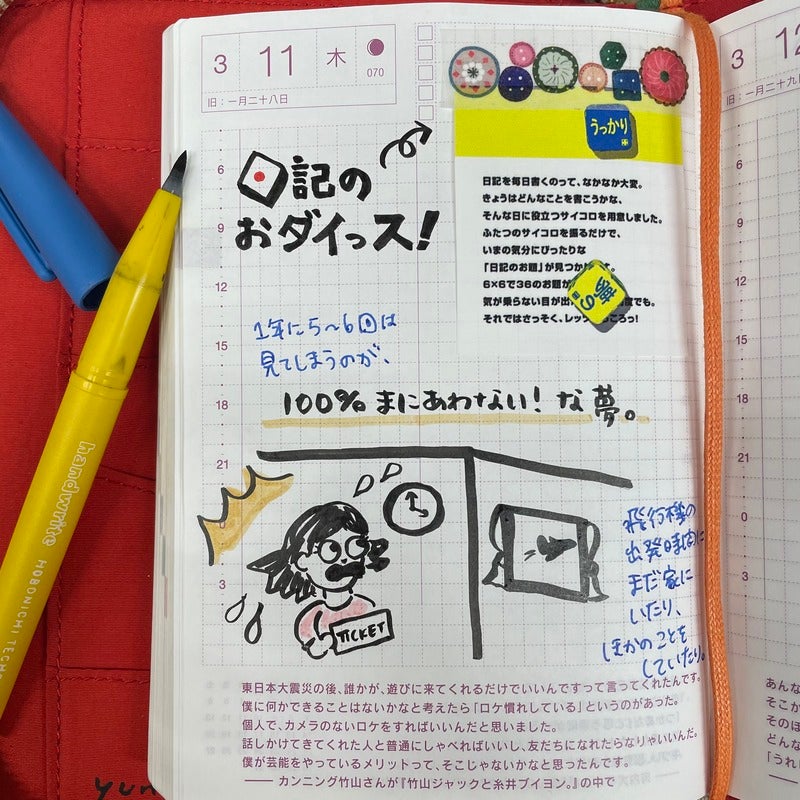 3 11 木
070
旧：一月二十八日
日記の
おダイっス!
うっかり
日記を毎日書くのって、なかなか大変。
きょうはどんなことを書こうかな、
そんな日に役立つサイコロを用意しました。
ふたつのサイコロを振るだけで、
いまの気分にぴったりな
「日記のお題」が見つか
6×6で36のお題が
気が乗らない目が出 度でも。
それではさっそく、レッツ ころっ!
6
9
12
15
18
21
0
3
1年に5〜6回は
見てしまうのが、
100%まにあわない! な夢。
TICKET
飛行機の
出発時間に
まだ家に
いたり、
ほかのことを
していたり。
東日本大震災の後、誰かが、遊びに来てくれるだけでいいんですって言ってくれたんです。
僕に何かできることはないかなと考えたら「ロケ慣れしている」というのがあった。
個人で、カメラのないロケをすればいいんだと思いました。
話しかけてきてくれた人と普通にしゃべればいいし、友だちになれたらなりゃいいんだ。
僕が芸能をやっているメリットって、そこじゃないかなと思ったんです。
── カンニング竹山さんが『竹山ジャックと糸井ブイヨン。』の中で
handwrite HOBONICHI TECHO
3 12
旧：一月二十九
6
9
12
15
18
21
0
3
あんな
そこか
そのほ
どんな
「うれ